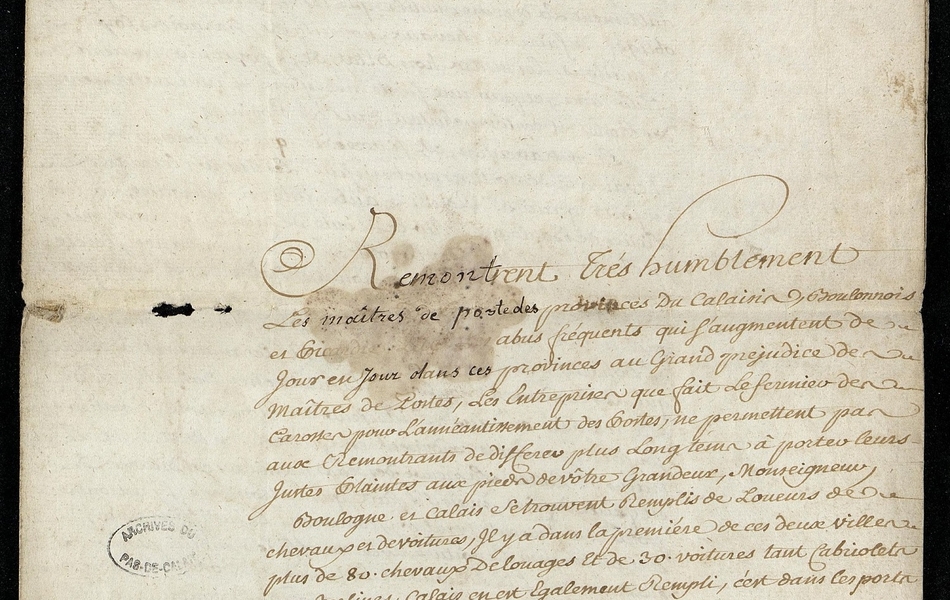 Remontrent trés humblement
Les maîtres de poste des provinces du Calaisis, Boulonnois
et abus fréquents qui s'augmentent de
Jour en Jour dans ces provinces au Grand préjudice des
Maîtres de Postes, Les Entreprises que fait Le fermier des
Carosses pour L'anneantissement des Postes, ne permettent pas
aux Remontrants de differer plus Long tems à porter leurs
Justes Plaintes aux pieds de vôtre Grandeur, Monseigneur,
Boulogne et Calais se trouvent Remplis de Loueurs de
chevaux et de voitures, Il y a dans la premiére de ces deux villes
plus de 80. chevaux de louages Et de 30. voitures tant Cabriolets
Calais en est Egalement Rempli, c'est dans les ports
ARCHIVES DU
PAS-DE-CALAIS